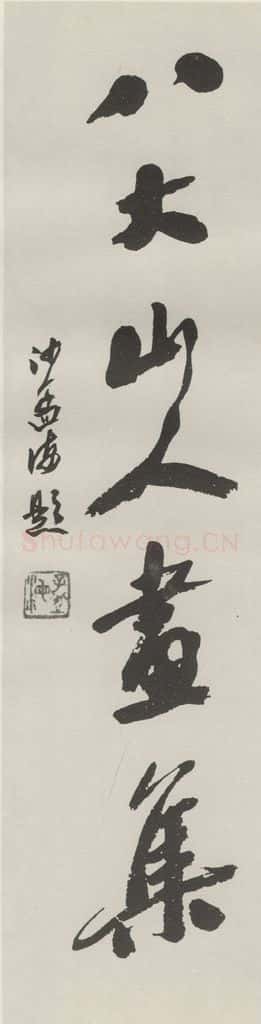 八大山人畫集
沙孟海題
Shufawang.CN